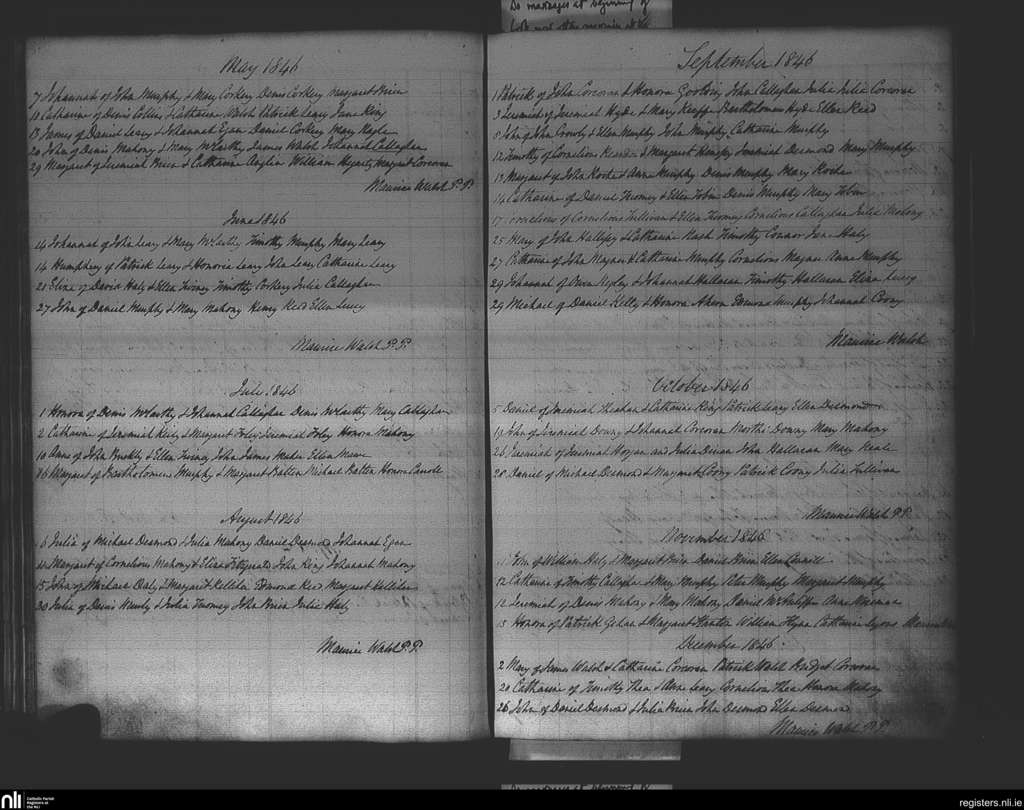 Do marriages at beginning of
May 1846
7 Johannah of John Murphy & Mary Corkery Denis Corkery Margaret Brien
10 Catharine of Denis Collins & Catharine Walsh Patrick Leary Jane King
13 James of Daniel Leary & Johannah Egan Daniel Corkery Mary Nagle
20 John of Denis Mahony & Mary McCarthy James Walsh Johannah Callaghan
29 Margaret of Jeremiah Brien & Catharine William Hegarty Margaret Corcoran
Maurice Walsh P.P.
June 1846
Johannah of John Leary & Mary McCarthy Timothy Murphy Mary Leary
14 Humphrey of Patrick Leary & Honoria Leary John Leary Catharine Leary
21 Eliza of David Haly & Ellen Timothy Corkery Julia Callaghan
27 John of Daniel Murphy & Mary Mahony Henry Reid Ellen Lucey
Maurice Walsh P.P.
July 1846
1 Honora of Denis McCarthy & Johannah Callaghan Denis McCarthy Mary Callaghan
2 Catharine of Jeremiah & Margaret Foley Jeremiah Foley Honora Mahony
10 Anne of John Buckley & Ellen John James Ellen
16 Margaret of Bartholomew Murphy & Margaret Batten Michael Batten Honora Carroll
August 1846
6 Julia of Michael Desmond & Julia Mahony Daniel Desmond Johannah Egan
Margaret of Cornelious Mahony & Eliza Fitzgerald John King Johannah Mahony
15 John of Michael Daly & Margaret Kelleher Edmond Margaret Kelleher
30 Julia of Denis & Julia Twomey John Brien Julia Haly
Maurice Walsh P.P.
September 1846
1 Patrick of John Corcoran & Honora John Callaghan Julia Julia Corcoran
3 Jeremiah of Jeremiah Hyde & Mary Keeffe Bartholomew Hyde Ellen Reid
8 John of John Crowly & Ellen Murphy John Murphy Catharine Murphy
12 Timothy of Cornelious & Margaret Jeremiah Desmond Mary Murphy
13 Margaret of John Roche & Anne Murphy Denis Murphy Mary Roche
14 Catharine of Daniel Twomey & Ellen Tobin Denis Murphy Mary Tobin
17 Cornelious of Cornelious Sullivan & Ellen Twomey Cornelious Callaghan Julia Mahony
25 Mary of John & Catharine Nash Timothy Connor Jane Haly
27 Catharine of John & Catharine Murphy Cornelious Anne Murphy
29 Johannah of Owen & Johannah Halloran Timothy Halloran Eliza Lucey
29 Michael of Daniel Kelly & Honora Ahern Edmond Murphy Johannah Coony
Maurice Walsh
October 1846
5 Daniel of Jeremiah & Catharine King Patrick Leary Ellen Desmond
19 John of Jeremiah Downy & Johannah Corcoran Downy Mary Mahony
26 Jeremiah of Jeremiah and Julia John Halloran Mary Neale
28 Daniel of Michael Desmond & Margaret Coony Patrick Coony Julia Sullivan
Maurice Walsh P.P.
November 1846
11 John of William Haly & Margaret Brien Daniel Brien Ellen
12 Catharine of Timothy & Mary Murphy Peter Murphy Margaret Murphy
12 Jeremiah of Denis Mahony & Mary Mahony Daniel McAuliffe Anne
13 Honora of Patrick & Margaret William Catharine Lyons
December 1846
2 Mary of James Walsh & Catharine Corcoran Patrick Walsh Bridget Corcoran
20 Catharine of Timothy Shea & Anne Leary Cornelious Shea Honora Mahony
26 John of Daniel Desmond & Julia Brien John Desmond Ellen Desmond
Maurice Walsh P.P.
nli
Catholic Parish
Registers at
the NLI
registers.nli.ie